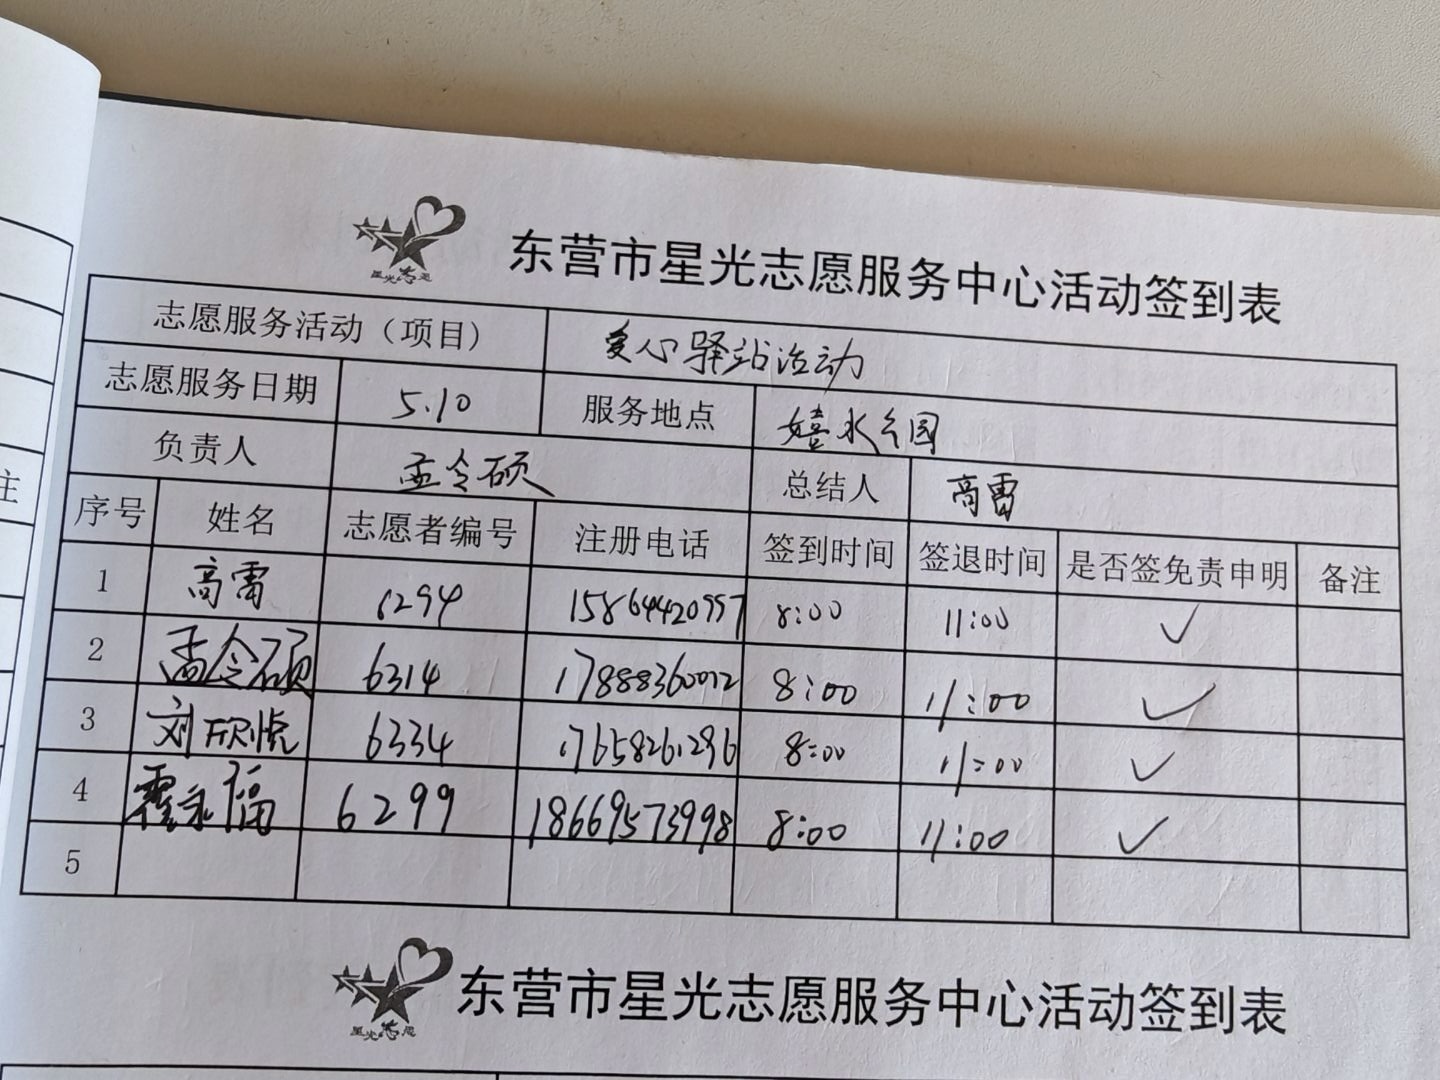 星光志愿
东营市星光志愿服务中心活动签到表
志愿服务活动（项目） 爱心驿站活动
志愿服务日期 5.10 服务地点 嬉水公园
负责人 孟令硕 总结人 高雷
序号 姓名 志愿者编号 注册电话 签到时间 签退时间 是否签免责申明 备注
1 高雷 6294 15864420997 8:00 11:00 ✓
2 孟令硕 6314 17888360012 8:00 11:00 ✓
3 刘欣悦 6334 17658261296 8:00 11:00 ✓
4 霍永福 6299 18669573998 8:00 11:00 ✓
5
星光志愿
东营市星光志愿服务中心活动签到表
注